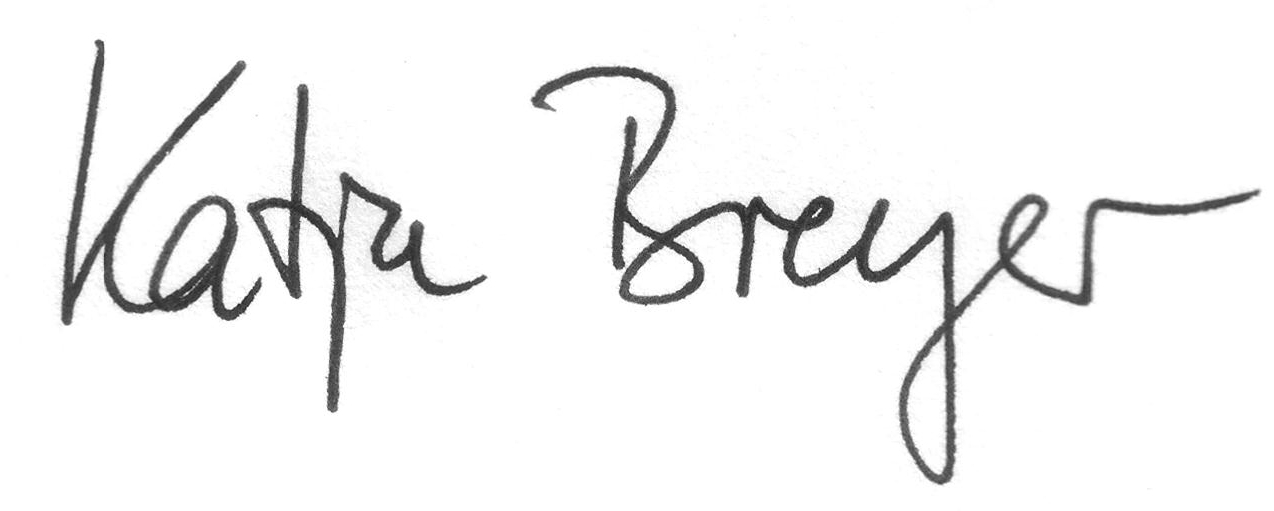 Katja Breyer